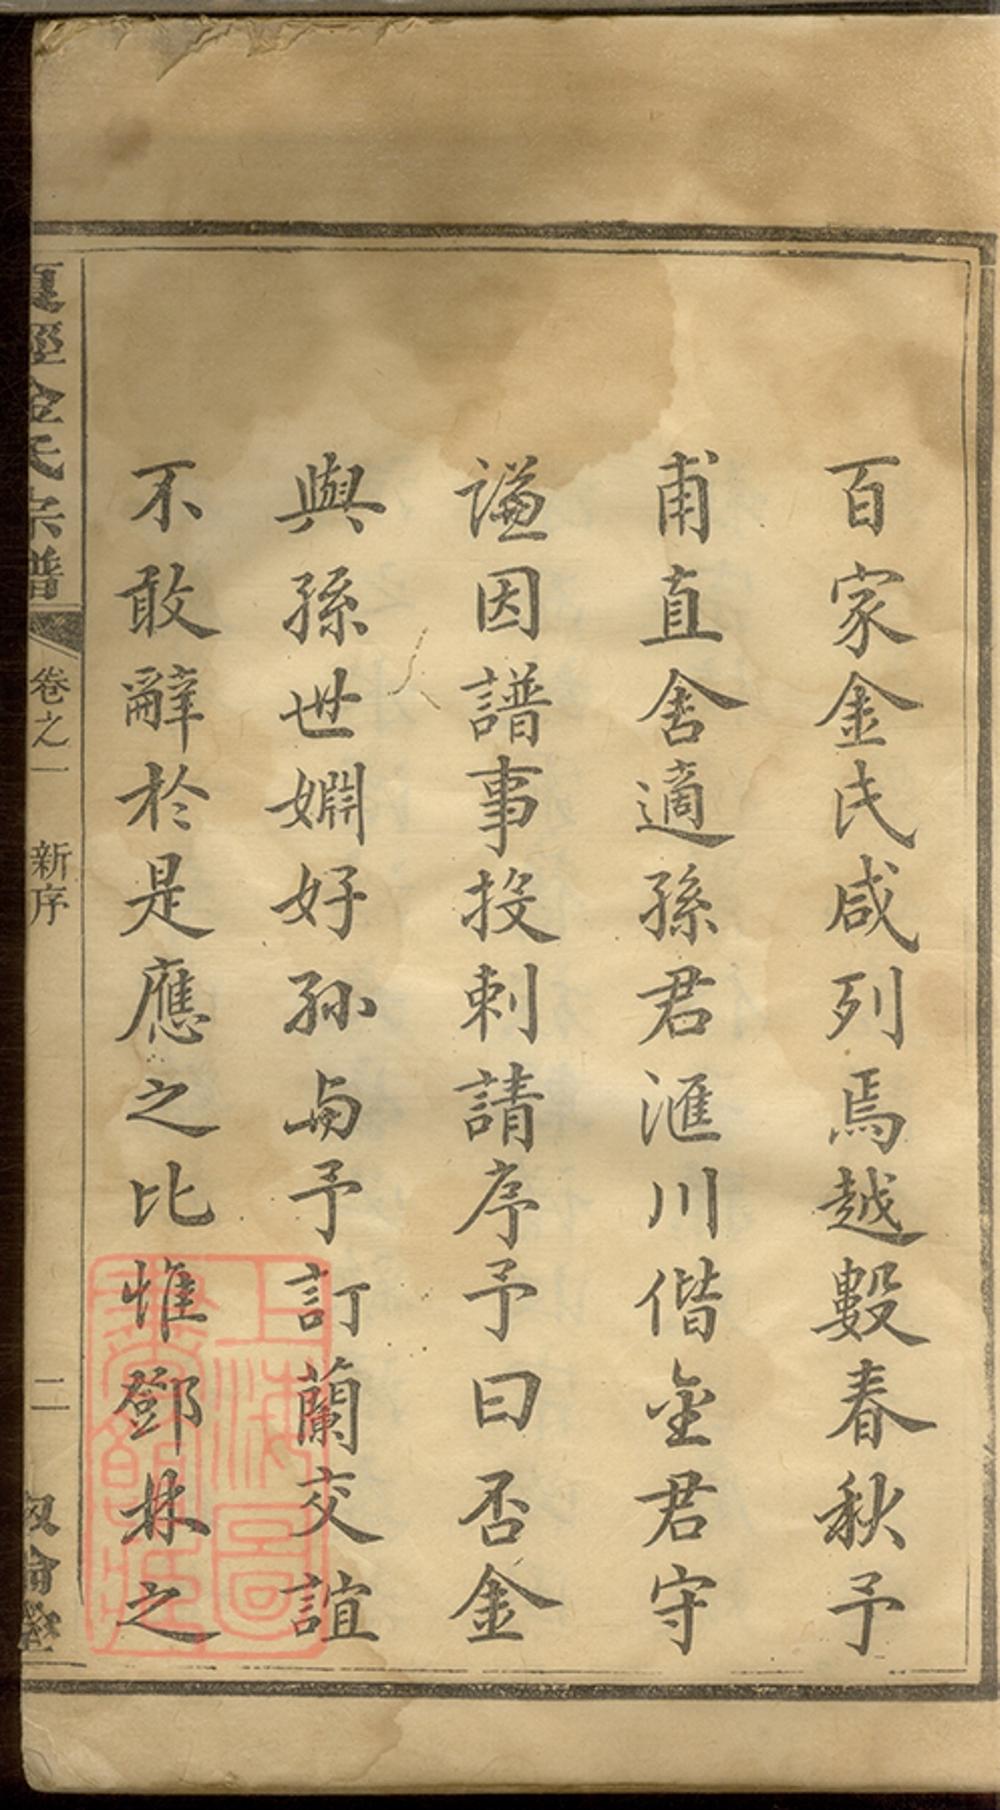 百家金氏咸列焉越數春秋予
甫直舍適孫君滙川偕金君守
謙因譜事投刺請序予曰否金
與孫世婣好孙与予訂蘭交誼
不敢辭於是應之比惟鄧林之
金氏宗譜
卷之一
新序
二
上海圖書館藏